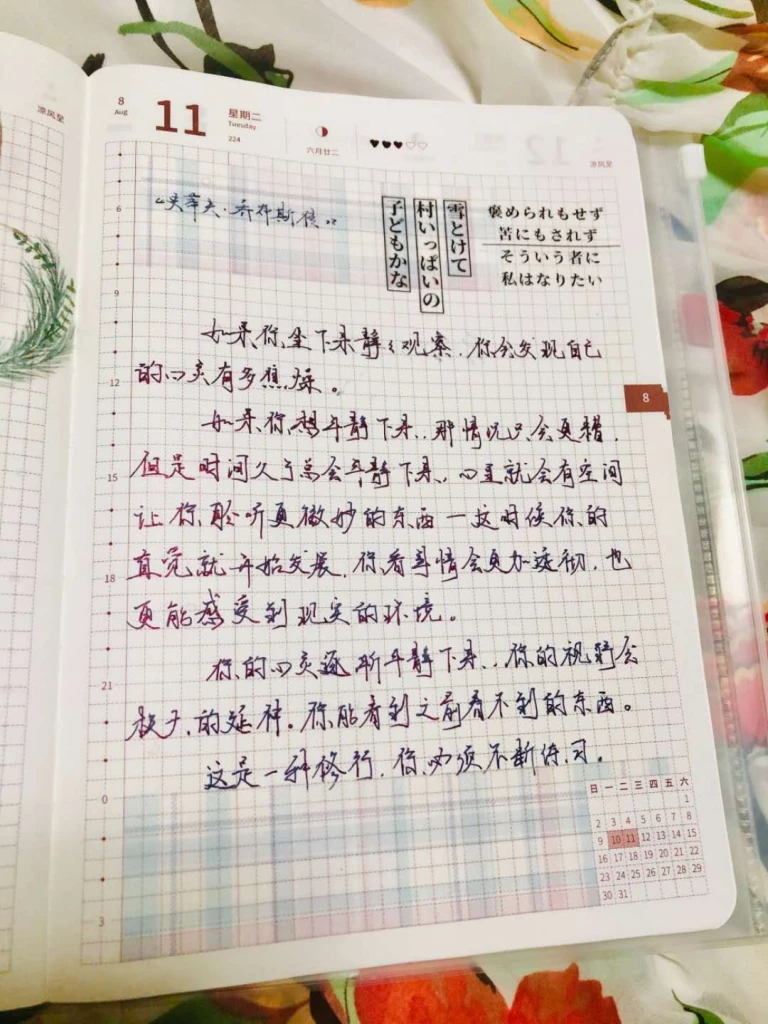 凉风至
8
Aug
11
星期二
Tuesday
224
六月廿二
凉风至
“史蒂夫·乔布斯传”
雪とけて
村いっぱいの
子どもかな
褒められもせず
苦にもされず
そういう者に
私はなりたい
如果你坐下来静静观察,你会发现自己
的心灵有多焦燥。
如果你想平静下来,那情况只会更糟,
但是时间久了总会平静下来,心里就会有空间
让你聆听更微妙的东西—这时候你的
直觉就开始发展,你看事情会更加透彻,也
更能感受到现实的环境。
你的心灵逐渐平静下来,你的视野会
极大的延伸。你能看到之前看不到的东西。
这是一种修行,你必须不断练习。
6
9
12
15
18
21
0
3
8
日 一 二 三 四 五 六
1
2 3 4 5 6 7 8
9 10 11 12 13 14 15
16 17 18 19 20 21 22
23 24 25 26 27 28 29
30 31